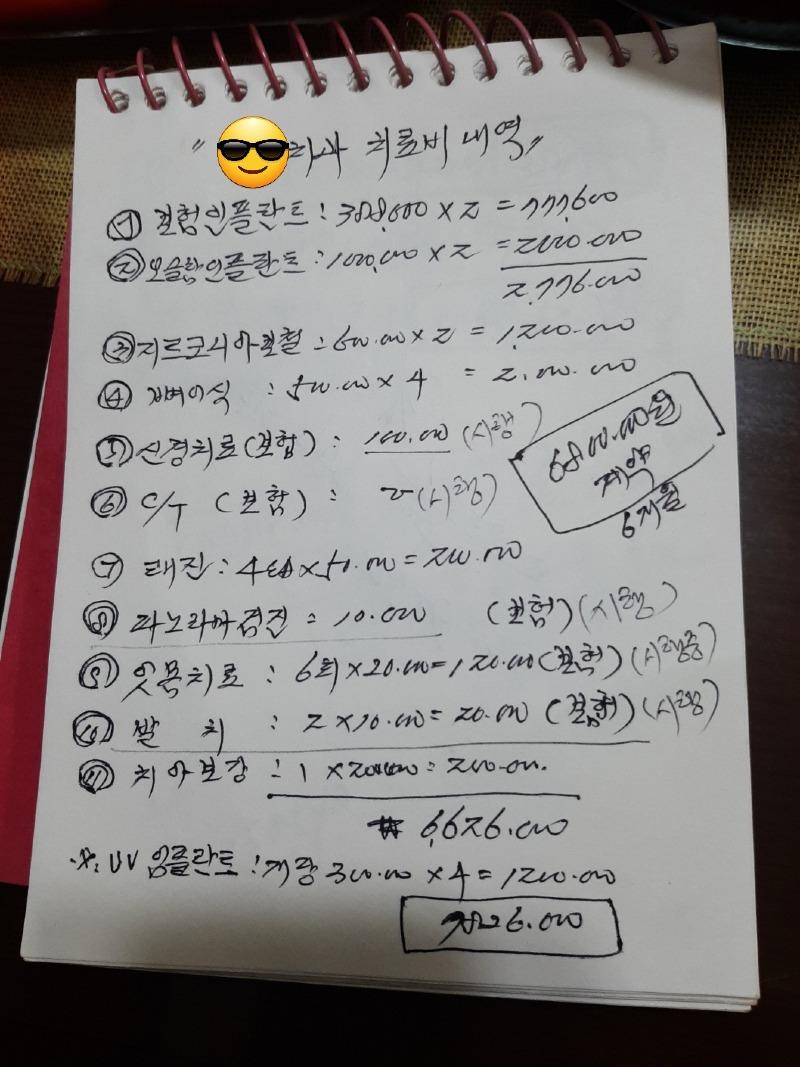 " 여사 치료비 내역 "
① 보험임플란트 : 388,000 × 2 = 777,600
② 오스템임플란트 : 1000,000 × 2 = 2000.000
2,776.000
③ 지르코니아보철 : 600.000 × 2 = 1,200.000
④ 뼈이식 : 500.000 × 4 = 2,000.000
⑤ 신경치료(보험) : 100.000 (시행)
⑥ C/T (보험) : (시행)
6800.000원
계약
6개월
⑦ : 4 × 50.000 = 200.000
⑧ 파노라마검진 : 10.000 (보험) (시행)
⑨ 잇몸치료 : 6회 × 20.000 = 120.000 (보험) (시행중)
⑩ 발치 : 2 × 10.000 = 20.000 (보험) (시행)
⑪ 치아보강 : 1 × 200.000 = 200.000.
₩ 6,626.000
※. UV 임플란트 : 개당 300.000 × 4 = 1200.000
7826.000